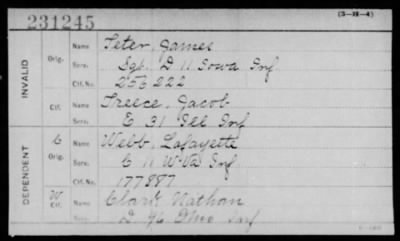 231245
(3-18-4)
INVALID
Orig.
Name Teter, James
Serv. Sgt. D 11 Iowa Inf
Ctf. No. 256222
Ctf.
Name Treece, Jacob
Serv. E 31 Ill Inf
DEPENDENT
C
Orig.
Name Webb, Lafayette
Serv. C 11 W Va Inf.
Ctf. No. 177887
W
Ctf.
Name Clark Nathan
Serv. D 96 Ohio Inf